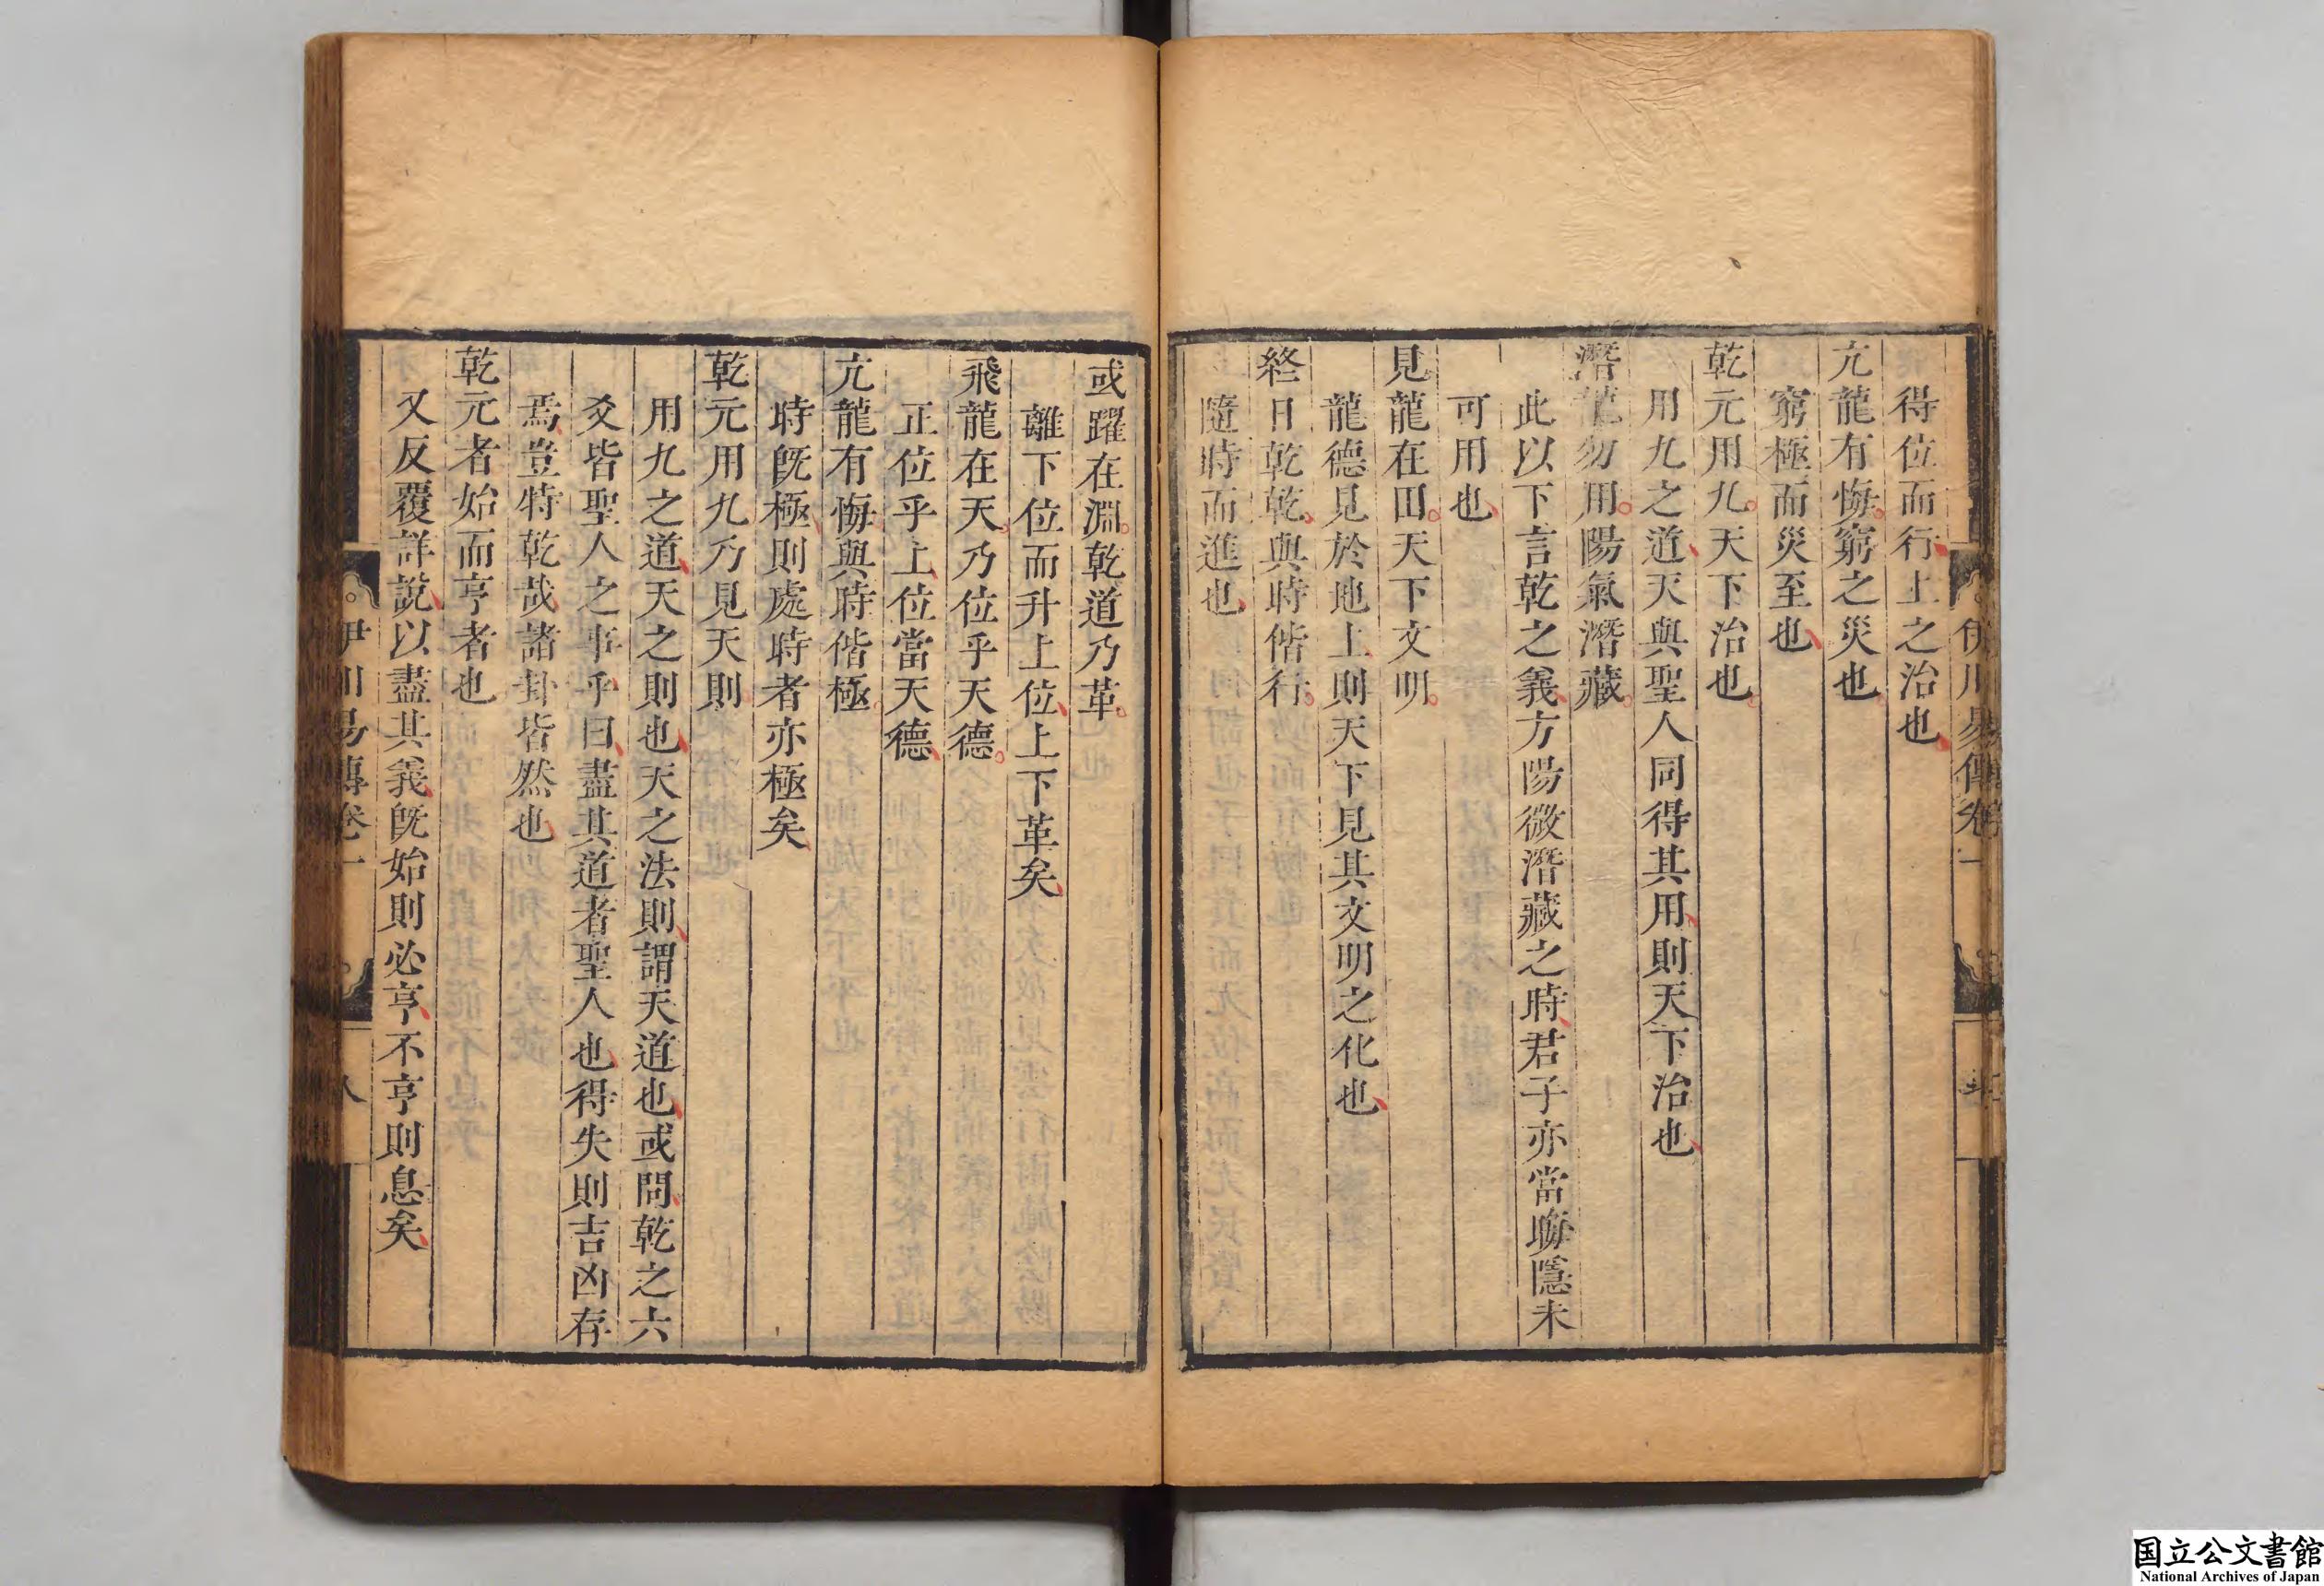 得位而行上之治也
亢龍有悔窮之災也
窮極而災至也
乾元用九天下治也
用九之道天與聖人同得其用則天下治也
潛龍勿用陽氣潛藏
此以下言乾之義方陽微潛藏之時君子亦當晦隱未
可用也
見龍在田天下文明
龍德見於地上則天下見其文明之化也
終日乾乾與時偕行
隨時而進也
或躍在淵乾道乃革
離下位而升上位上下革矣
飛龍在天乃位乎天德
正位乎上位當天德
亢龍有悔與時偕極
時旣極則處時者亦極矣
乾元用九乃見天則
用九之道天之則也天之法則謂天道也或問乾之六
爻皆聖人之事乎曰盡其道者聖人也得失則吉凶存
焉豈特乾哉諸卦皆然也
乾元者始而亨者也
又反覆詳說以盡其義旣始則必亨不亨則息矣
伊川易傳卷一
八
国立公文書館
National Archives of Japan